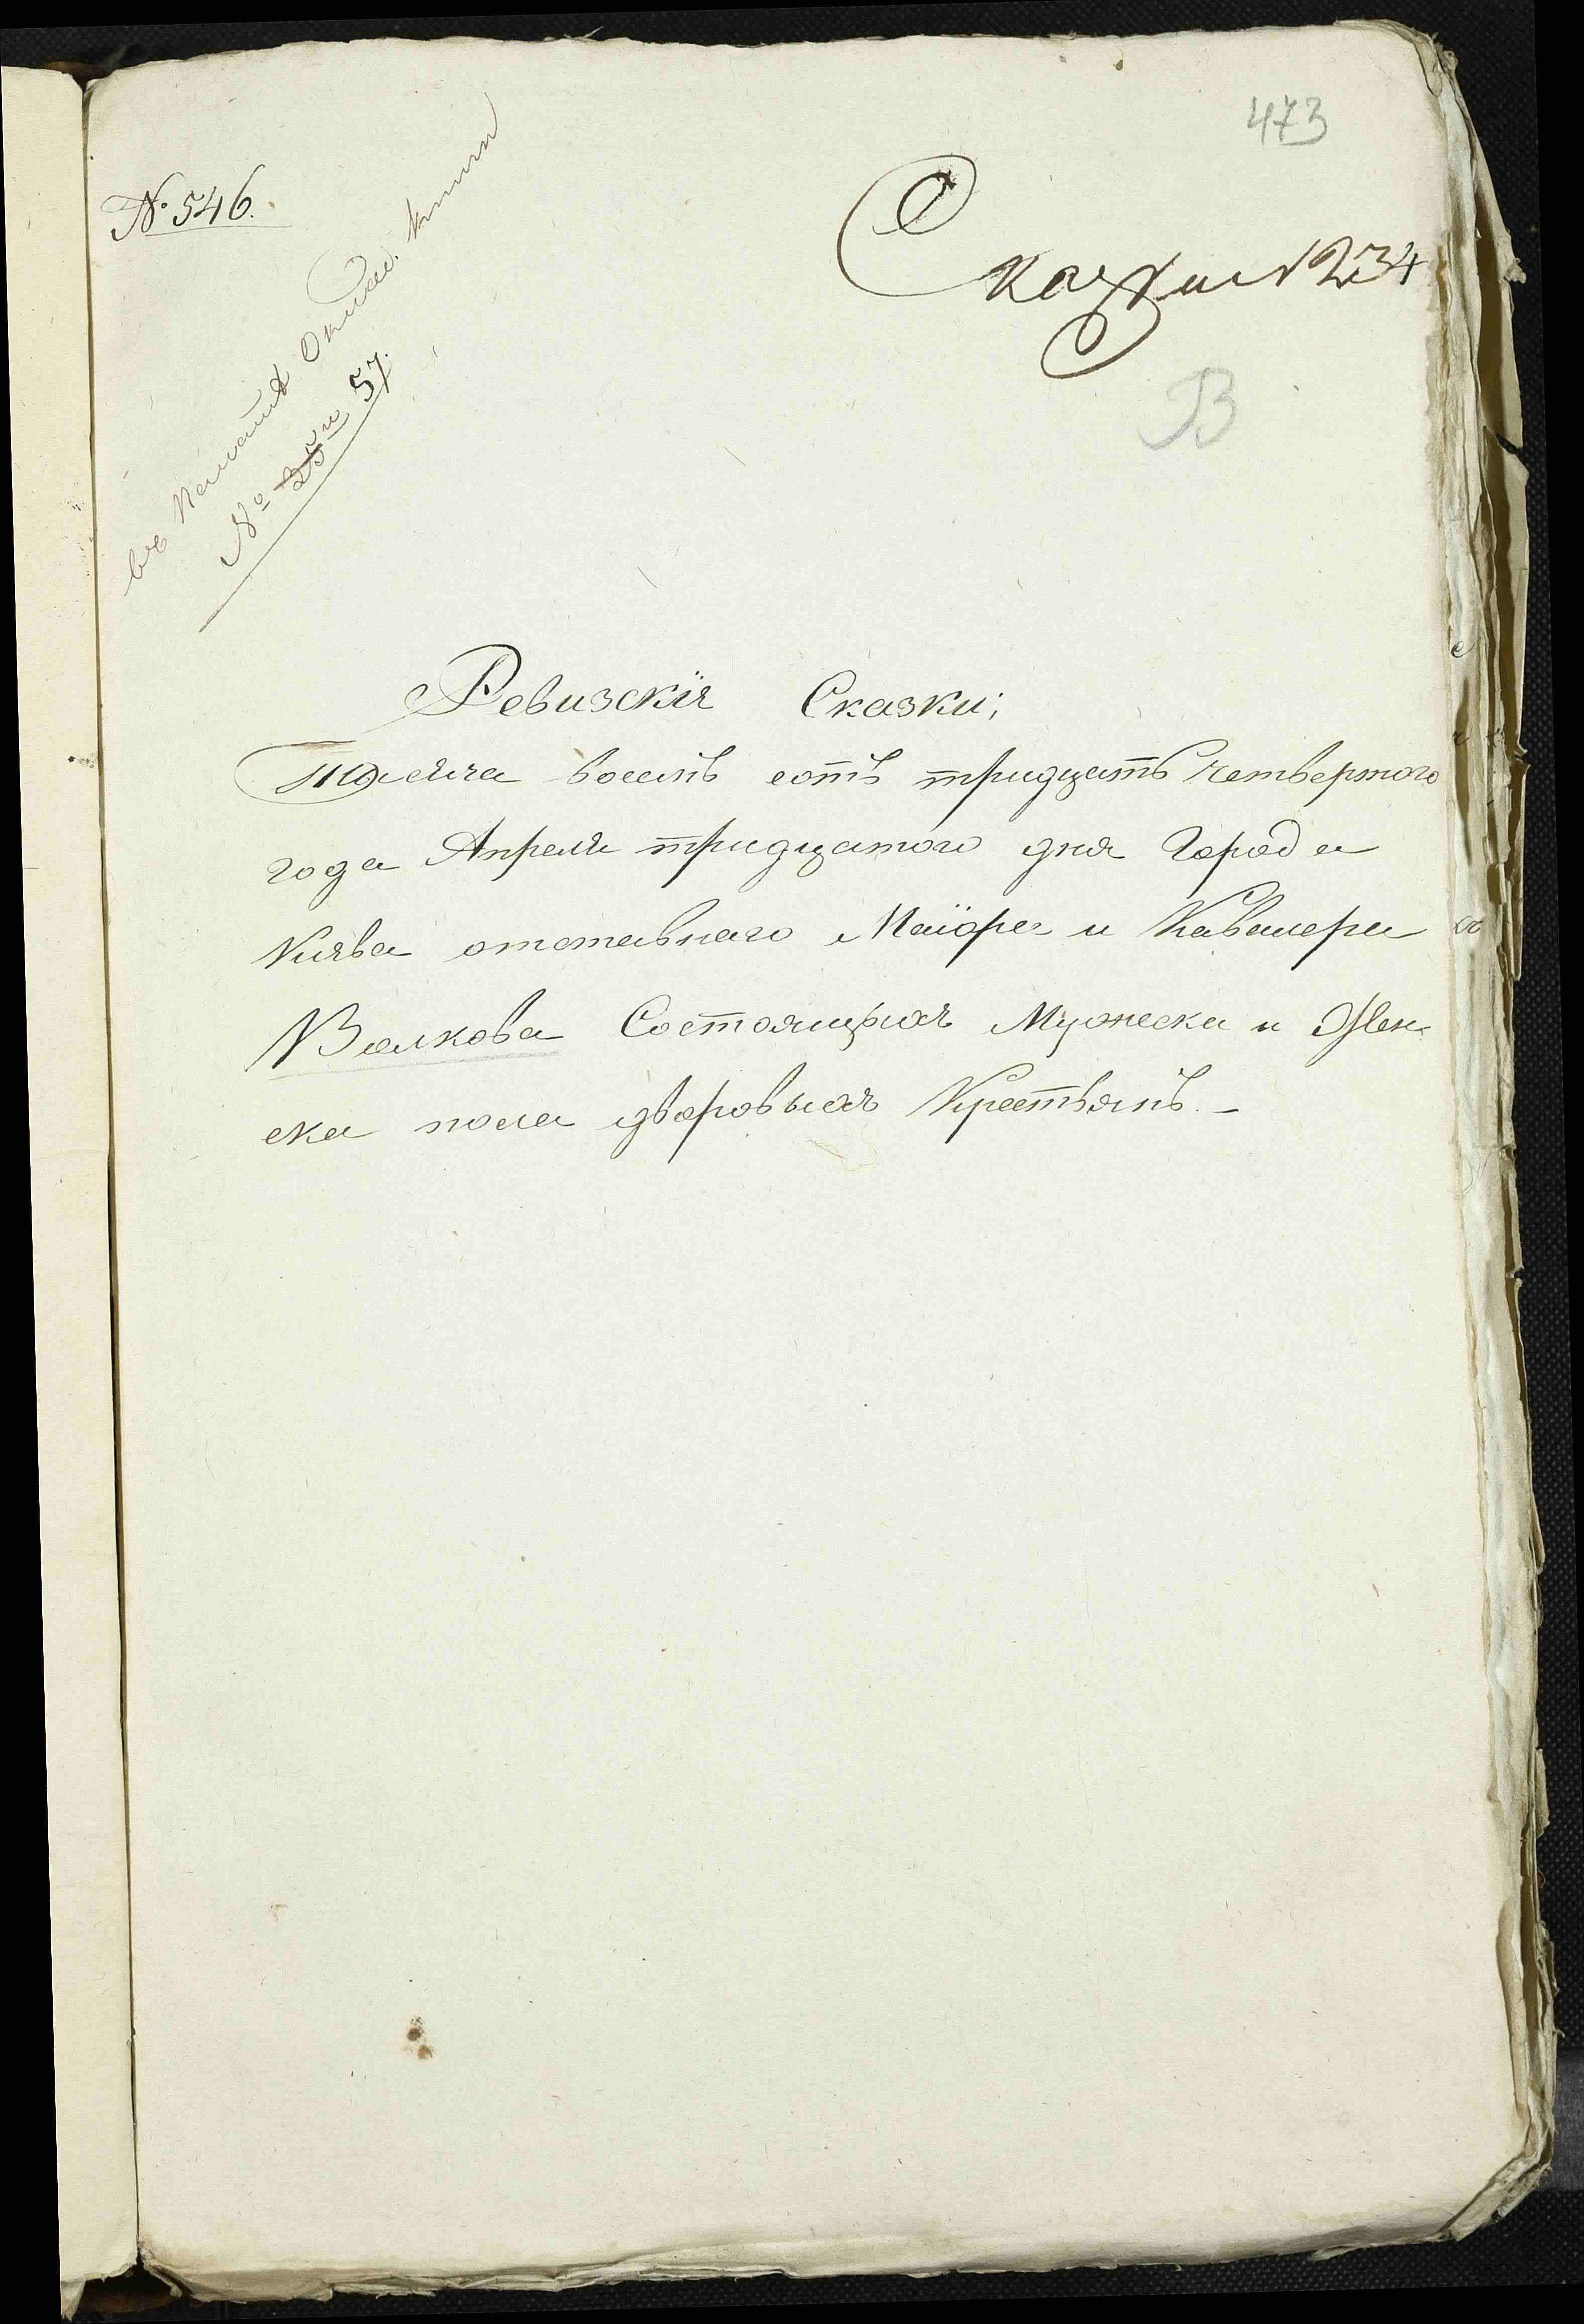 473
№ 546.
Сказка № 234
В
въ
№ 35 и 57.
Ревизскія Сказки;
Тысяча восемь сотъ тридцать четвертого
года Апреля тридцатого дня города
Киява отставнаго Маіора и Кавалера
Волкова Состоящихъ Мужеска и Жен
ска пола дворовыхъ Крестьянъ. –